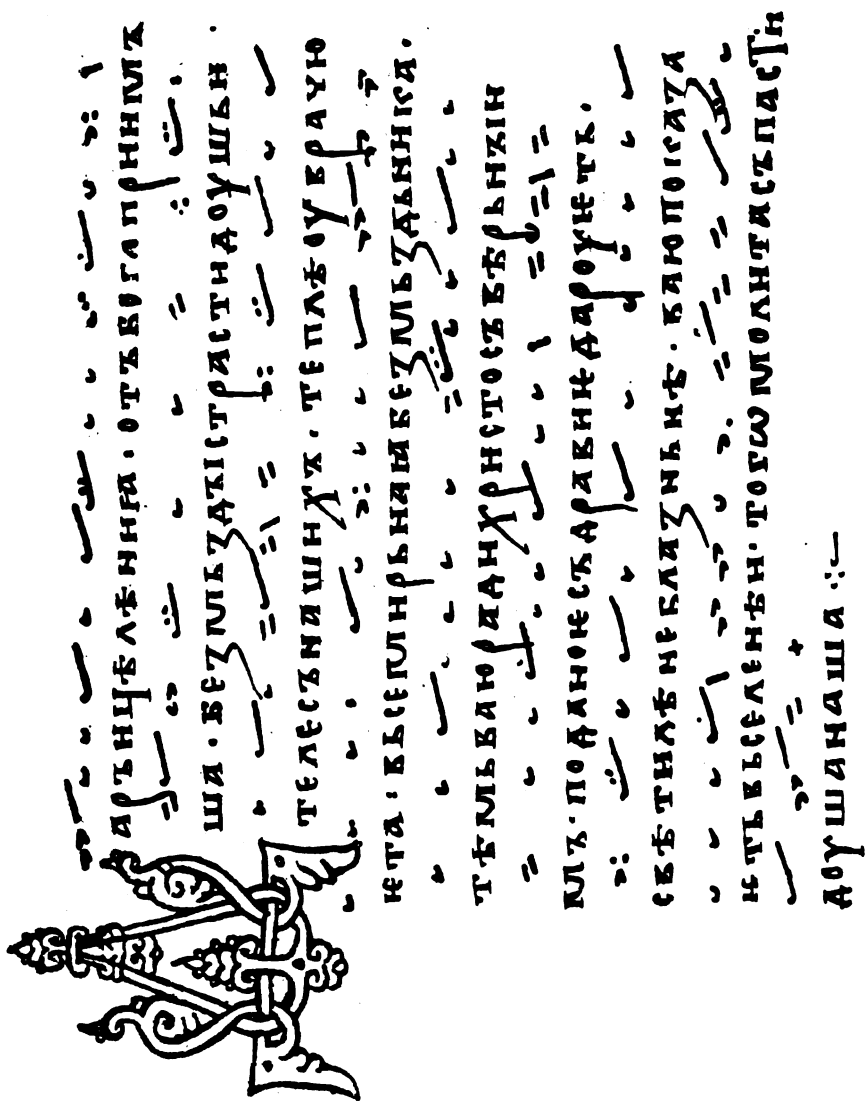 Даръицѣлѣниꙗ · отъбогаприимъ
ша · беꙁмьꙁдъістрастидоушьи ·
телесънашихъ · теплѣоуврачю
ѥта · вьсемирьнаꙗбеꙁмьꙁдьника ·
тѣмьваюрадихристосъвѣрьнъіи
мъ · поданоѥсъдравиѥдароуѥть ·
свѣтилѣнеблаꙁньнѣ · ваюпокаꙁа
ѥтьвьселенѣи · тогѡмолитасъпасти
доушанаша ⁘–